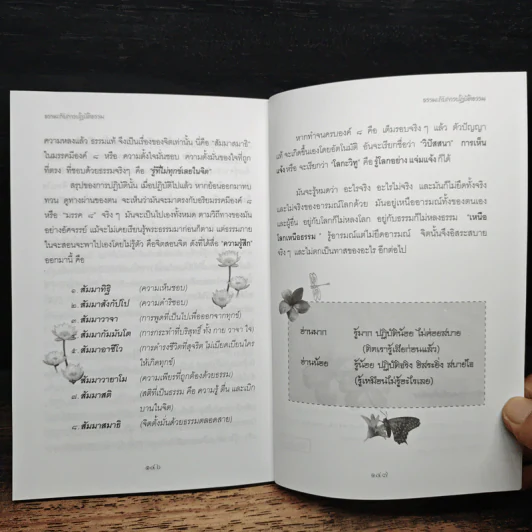 ธรรมะกับการปฏิบัติธรรม
ความหลงแล้ว ธรรมแท้ จึงเป็นเรื่องของจิตเท่านั้น นี่คือ "สัมมาสมาธิ"
ในมรรคมีองค์ ๘ หรือ ความตั้งใจมั่นชอบ ความตั้งมั่นของใจที่ถูก
ที่ตรง ที่ชอบด้วยธรรมจริงๆ คือ "รู้ที่ไม่ทุกข์เลยในจิต"
สรุปของการปฏิบัตินั้น เมื่อปฏิบัติไปแล้ว หากย้อนออกมาทบ
ทวน ดูทางผ่านของตน จะเห็นว่ามันจะมาตรงกับอริยมรรคมีองค์ ๘
หรือ "มรรค ๘" จริงๆ มันจะเป็นไปเองทั้งหมด ตามวิถีทางของมัน
อย่างอัศจรรย์ แม้จะไม่เคยเรียนรู้พระธรรมมาก่อนก็ตาม แต่ธรรมภาย
ในจะสอนจะพาไปเองโดยไม่รู้ตัว คือจิตสอนจิต ดังที่ได้สื่อ "ความรู้สึก"
ออกมานี้ คือ
๑. สัมมาทิฐิ (ความเห็นชอบ)
๒. สัมมาสังกัปโป (ความดำริชอบ)
๓. สัมมาวาจา (การพูดที่เป็นไปเพื่อออกจากทุกข์)
๔. สัมมากัมมันโต (การกระทำที่บริสุทธิ์ ทั้ง กาย วาจา ใจ)
๕. สัมมาอาชีโว (การดำรงชีวิตที่สุจริต ไม่เบียดเบียนใคร
ให้เกิดทุกข์)
๖. สัมมาวายาโม (ความเพียรที่ถูกต้องด้วยธรรม)
๗. สัมมาสติ (สติที่เป็นธรรม คือ ความรู้ ตื่น และเบิก
บานในจิต)
๘. สัมมาสมาธิ (จิตตั้งมั่นด้วยธรรมตลอดสาย)
ธรรมะกับการปฏิบัติธรรม
หากทำจนครบองค์ ๘ คือ เต็มรอบจริงๆ แล้ว ตัวปัญญา
แท้ จะเกิดขึ้นเองโดยอัตโนมัติ อันจะเรียกชื่อว่า "วิปัสสนา" การเห็น
แจ้ง หรือ จะเรียกว่า "โลกะวิทู" คือ รู้โลกอย่าง แจ่มแจ้ง ก็ได้
มันจะรู้หมดว่า อะไรจริง อะไรไม่จริง และมันก็ไม่ยึดทั้งจริง
และไม่จริงของอารมณ์โลกด้วย มันอยู่เหนืออารมณ์ทั้งของตนเอง
และผู้อื่น อยู่กับโลกก็ไม่หลงโลก อยู่กับธรรมก็ไม่หลงธรรม "เหนือ
โลกเหนือธรรม" รู้อารมณ์แต่ไม่ยึดอารมณ์ จิตนั้นจึงอิสระสบาย
จริงๆ และไม่ตกเป็นทาสของอะไร อีกต่อไป
อ่านมาก รู้มาก ปฏิบัติน้อย ไม่ค่อยสบาย
(คิดเรารู้เสียก่อนแล้ว)
อ่านน้อย รู้น้อย ปฏิบัติจริง สิจริง สบายใจ
(รู้เหมือนไม่รู้อะไรเลย)